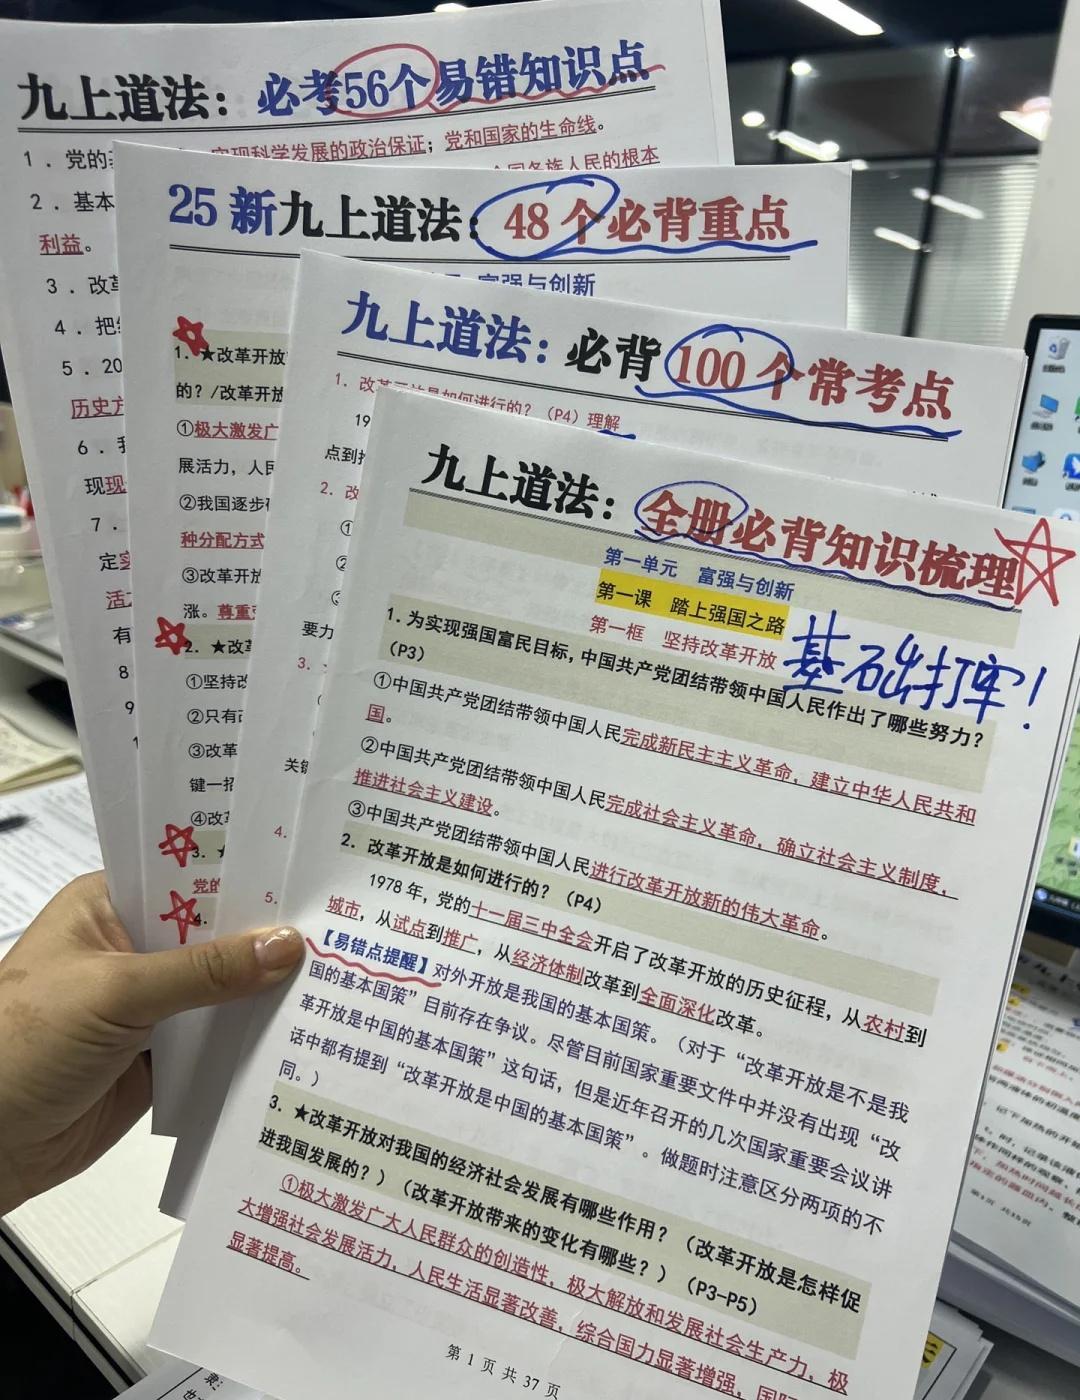 九上道法：必考56个易错知识点
1．党的
实现科学发展的政治保证；党和国家的生命线。
2．基本
全国各族人民的根本
利益。
3．改革
4．把
5．20
历史方
6．我
现现
7．
定实
活力
有
8
9
25新九上道法：48个必背重点
富强与创新
1．★改革开放
的？/改革开放
①极大激发广
展活力，人民
②我国逐步
种分配方式
③改革开放
涨。尊重
2．★改革
①坚持改
②只有
③改革
键一招
④改革
3．★
党的
4．
九上道法：必背100个常考点
1．改革开放是如何进行的？（P4）理解
19
点到
2．改
①
②
③
要力
3．
关键
4．
5．
九上道法：全册必背知识梳理
第一单元 富强与创新
第一课 踏上强国之路
第一框 坚持改革开放
基础打牢！
1．为实现强国富民目标，中国共产党团结带领中国人民作出了哪些努力？
（P3）
①中国共产党团结带领中国人民完成新民主主义革命，建立中华人民共和
国。
②中国共产党团结带领中国人民完成社会主义革命，确立社会主义制度，
推进社会主义建设。
③中国共产党团结带领中国人民进行改革开放新的伟大革命。
2．改革开放是如何进行的？（P4）
1978年，党的十一届三中全会开启了改革开放的历史征程，从农村到
城市，从试点到推广，从经济体制改革到全面深化改革。
【易错点提醒】对外开放是我国的基本国策。（对于“改革开放是不是我
国的基本国策”目前存在争议。尽管目前国家重要文件中并没有出现“改
革开放是中国的基本国策”这句话，但是近年召开的几次国家重要会议讲
话中都有提到“改革开放是中国的基本国策”。做题时注意区分两项的不
同。）
3．★改革开放对我国的经济社会发展有哪些作用？（改革开放是怎样促
进我国发展的？）（改革开放带来的变化有哪些？）（P3-P5）
①极大激发广大人民群众的创造性，极大解放和发展社会生产力，极
大增强社会发展活力，人民生活显著改善，综合国力显著增强，国际
显著提高。
第 1 页 共 37 页